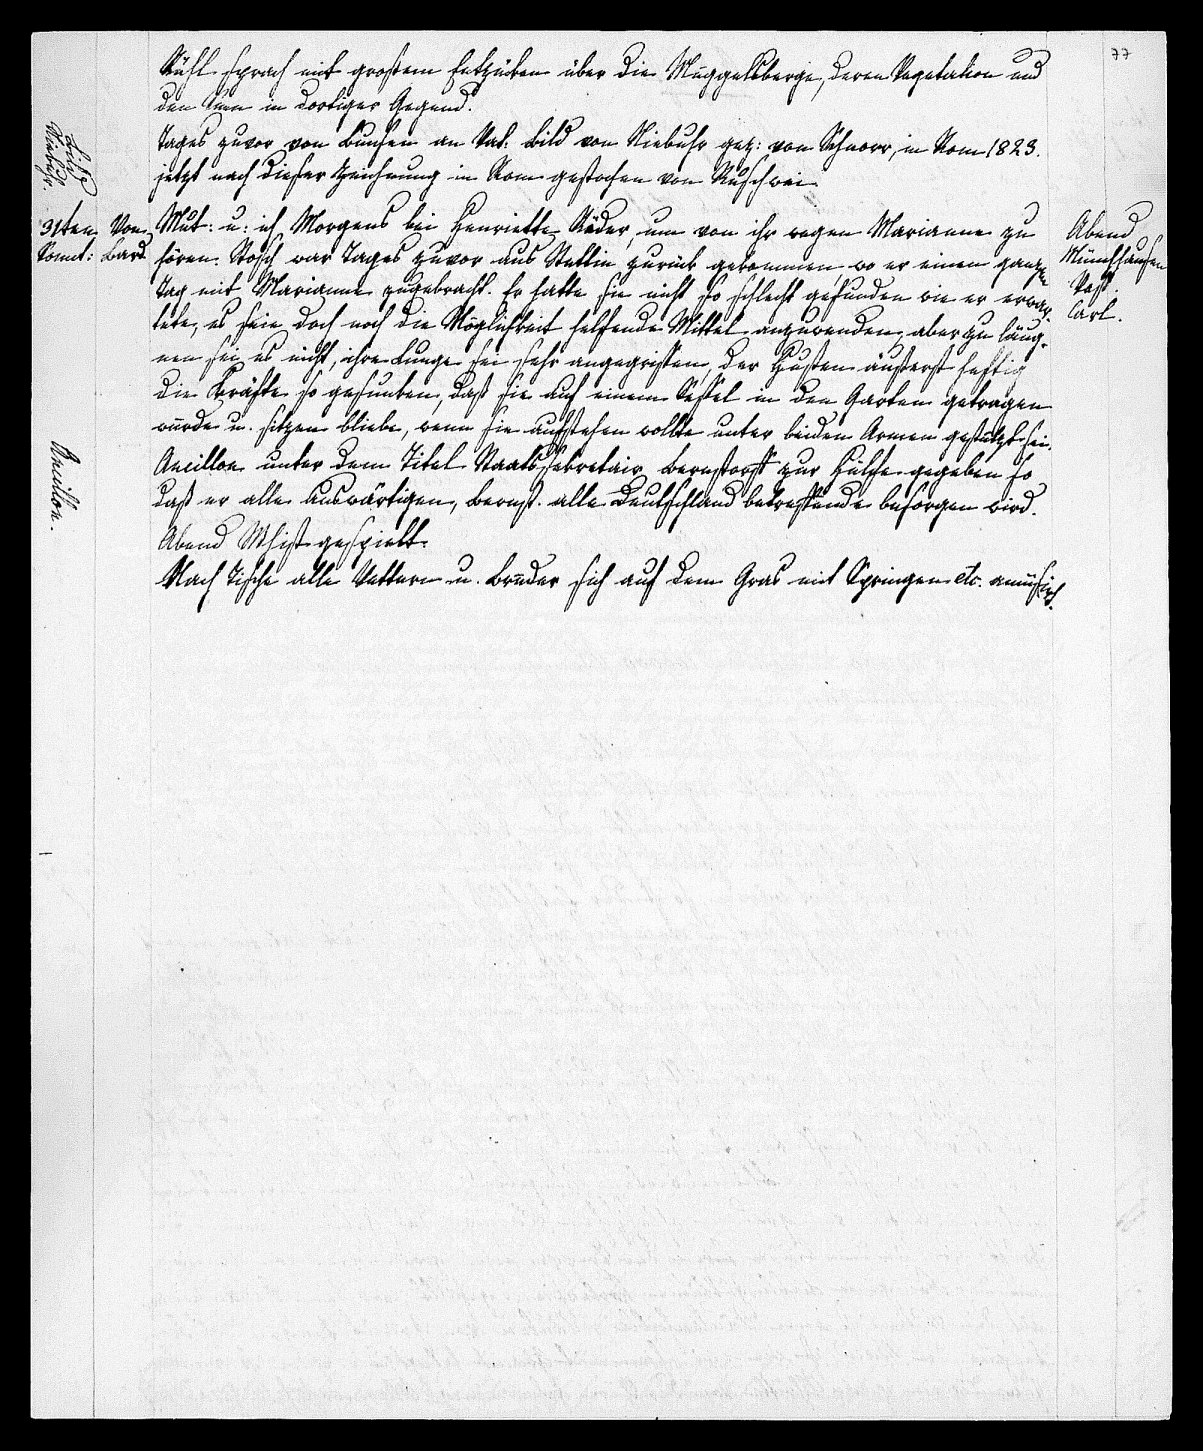 77
Rühl sprach mit großem Entzücken über die Müggelsberge, deren Vegetation und
den in dortiger Gegend.
Tages zuvor von Bunsen an Vat: Bild von Niebuhr gez: von Schnorr, in Rom 1823.
jetzt nach dieser Zeichnung in Rom gestochen von Ruschweih
Bild
Niebuhr
31ten Von
Sonnt: Bard
Mut: u: ich Morgens bei Henriette Röder, um von ihr wegen Marianne zu
hören. Stosch war Tages zuvor aus Stettin zurück gekommen, wo er einen ganzen
Tag mit Marianne zugebracht. Er hatte sie nicht so schlecht gefunden wie er erwar-
tete, es seie doch noch die Möglichkeit helfende Mittel anzuwenden, aber zu läug-
nen sei es nicht, ihre Lunge sei sehr angegriffen, der Husten äußerst heftig
die Kräfte so gesunken, daß sie auf einem Sessel in den Garten getragen
würde u. sitzen bliebe, wenn sie aufstehen wollte unter beiden Armen gestützt sei.
Ancillon unter dem Titel Staatssekretair Bernstorff zur Hülfe gegeben so
daß er alle Auswärtigen, Bernst. alle Deutschland betreffende besorgen wird.
Abend Whist gespielt.
Nach Tische alle Vettern u. Brüder sich auf dem Gras mit Springen etc. amüsirt.
Abend
Münchhausen
Carl.
Ancillon.